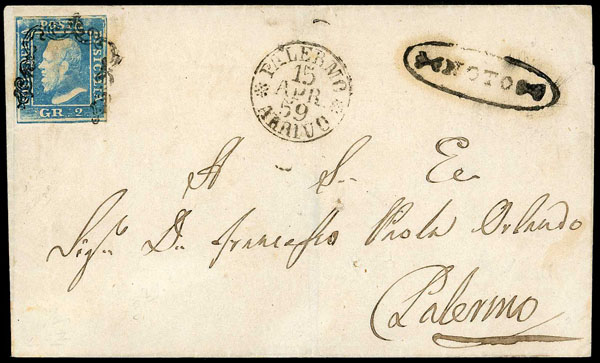 POSTA
SICILIA
GR. 2
PALERMO
15
APR
59
ARRIVO
NOTO
A S. Ec.
Sig.r D.n Francesco Paola Orlando
Palermo